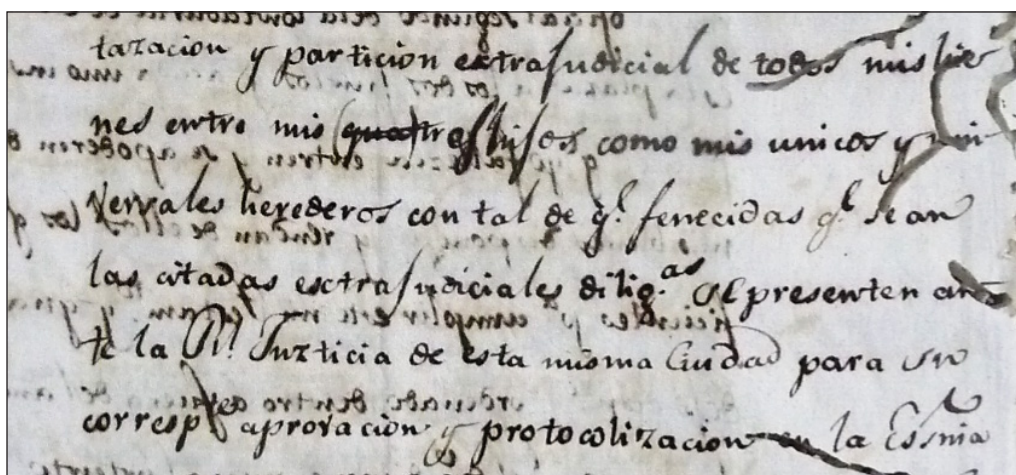 tazacion y particion extrajudicial de todos mis bie
nes entre mis tres hijos como mis unicos y uni
versales herederos con tal de q.e fenecidas q.e sean
las citadas esctrajudiciales dilig.as se presenten an
te la R.l Justicia de esta misma Ciudad para su
corresp.te aprovacion y protocolizacion en la Essnia